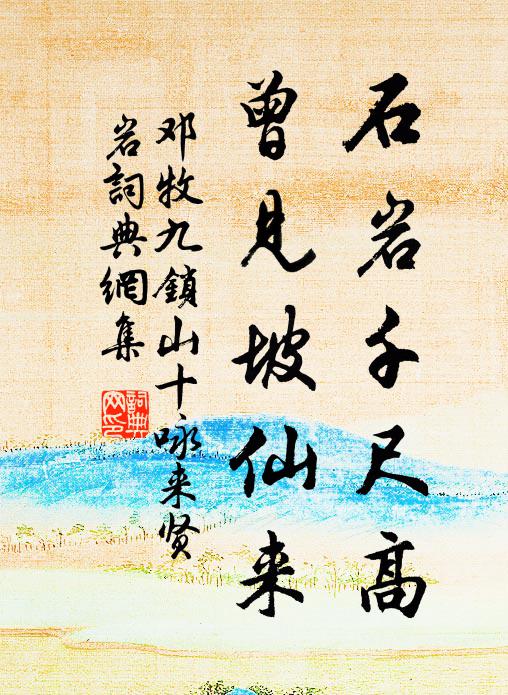 石岩千尺高
曾見坡仙来
邓牧九鎖山十咏来贤
岩詞典網集
詞典
网印